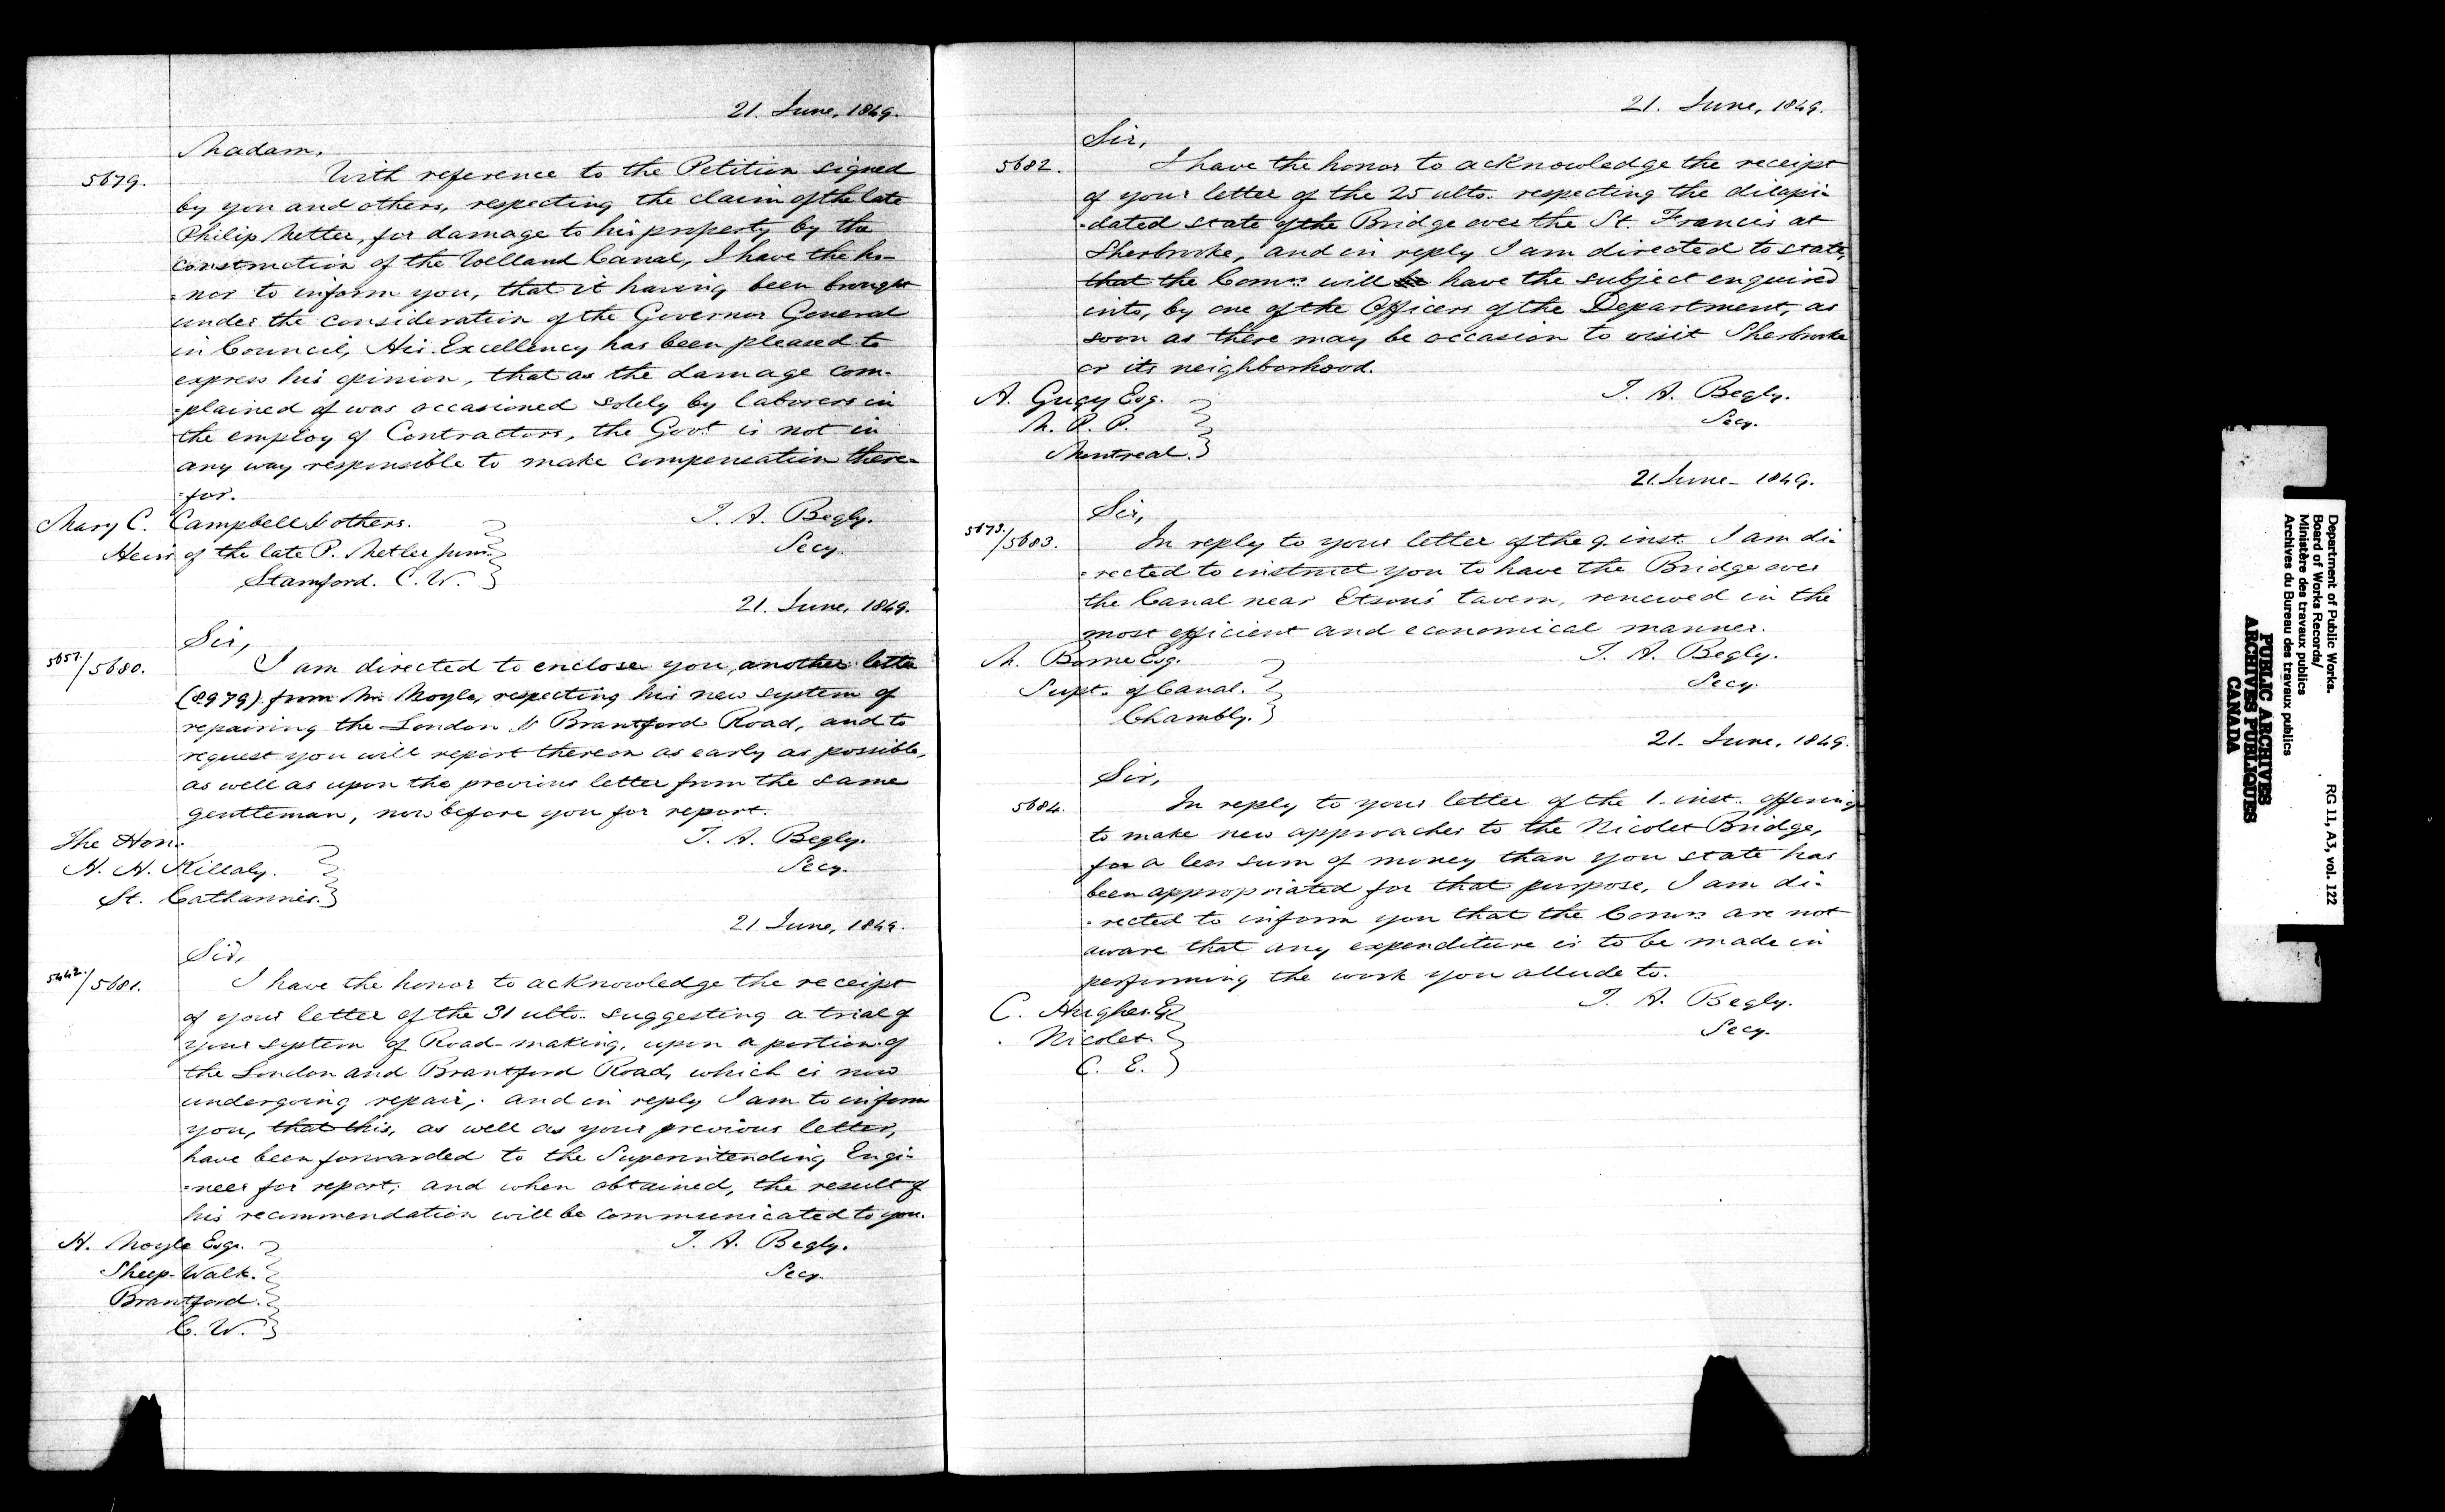 21. June, 1849.
Madam.
5679.
With reference to the Petition signed
by you and others, respecting the claim of the late
Philip Metler, for damage to his property by the
construction of the Welland Canal, I have the ho-
-nor to inform you, that it having been brought
under the consideration of the Governor General
in Council, His Excellency has been pleased to
express his opinion, that as the damage com-
-plained of was occasioned solely by laborers in
the employ of Contractors, the Govt. is not in
any way responsible to make compensation there-
-for.
Mary C. Campbell & others.
T. A. Begly.
Heirs of the late P. Metler Junr.
Secy.
Stamford. C. W.
21. June, 1849.
Sir,
5657./5680.
I am directed to enclose you, another letter
(8979) from Mr. Moyle, respecting his new system of
repairing the London & Brantford Road, and to
request you will report thereon as early as possible,
as well as upon the previous letter from the same
gentleman, now before you for report.
The Hon:
T. A. Begly.
H. H. Killaly.
Secy.
St. Catharines.
21 June, 1849.
Sir,
5442./5681.
I have the honor to acknowledge the receipt
of your letter of the 31 ulto. suggesting a trial of
your system of Road-making, upon a portion of
the London and Brantford Road, which is now
undergoing repair, and in reply I am to inform
you, that this, as well as your previous letter,
have been forwarded to the Superintending Engi-
-neer for report; and when obtained, the result of
his recommendation will be communicated to you.
H. Moyle Esqr.
T. A. Begly.
Sheep-Walk.
Secy.
Brantford.
C. W.
21. June, 1849.
Sir,
5682.
I have the honor to acknowledge the receipt
of your letter of the 25 ulto. respecting the dilapi-
-dated state of the Bridge over the St. Francis at
Sherbrooke, and in reply I am directed to state,
that the Comrs. will be have the subject enquired
into, by one of the Officers of the Department, as
soon as there may be occasion to visit Sherbrooke
or its neighborhood.
A. Gugy Esq.
T. A. Begly.
M. P. P.
Secy.
Montreal.
21. June- 1849.
Sir,
5673./5683.
In reply to your letter of the 9. inst. I am di-
-rected to instruct you to have the Bridge over
the Canal near Etson's tavern, renewed in the
most efficient and economical manner.
T. A. Begly.
Supt. of Canal.
Secy.
Chambly.
21. June, 1849.
Sir,
5684.
In reply to your letter of the 1. inst. offering
to make new approaches to the Nicolet Bridge,
for a less sum of money than you state has
been appropriated for that purpose, I am di-
-rected to inform you that the Comrs. are not
aware that any expenditure is to be made in
performing the work you allude to.
C. Hughes Eq
T. A. Begly.
Nicolet.
Secy.
C. E.
Department of Public Works.
Board of Works Records/
Ministère des travaux publics
Archives du Bureau des travaux publics
RG 11, A3, vol. 122
PUBLIC ARCHIVES
ARCHIVES PUBLIQUES
CANADA